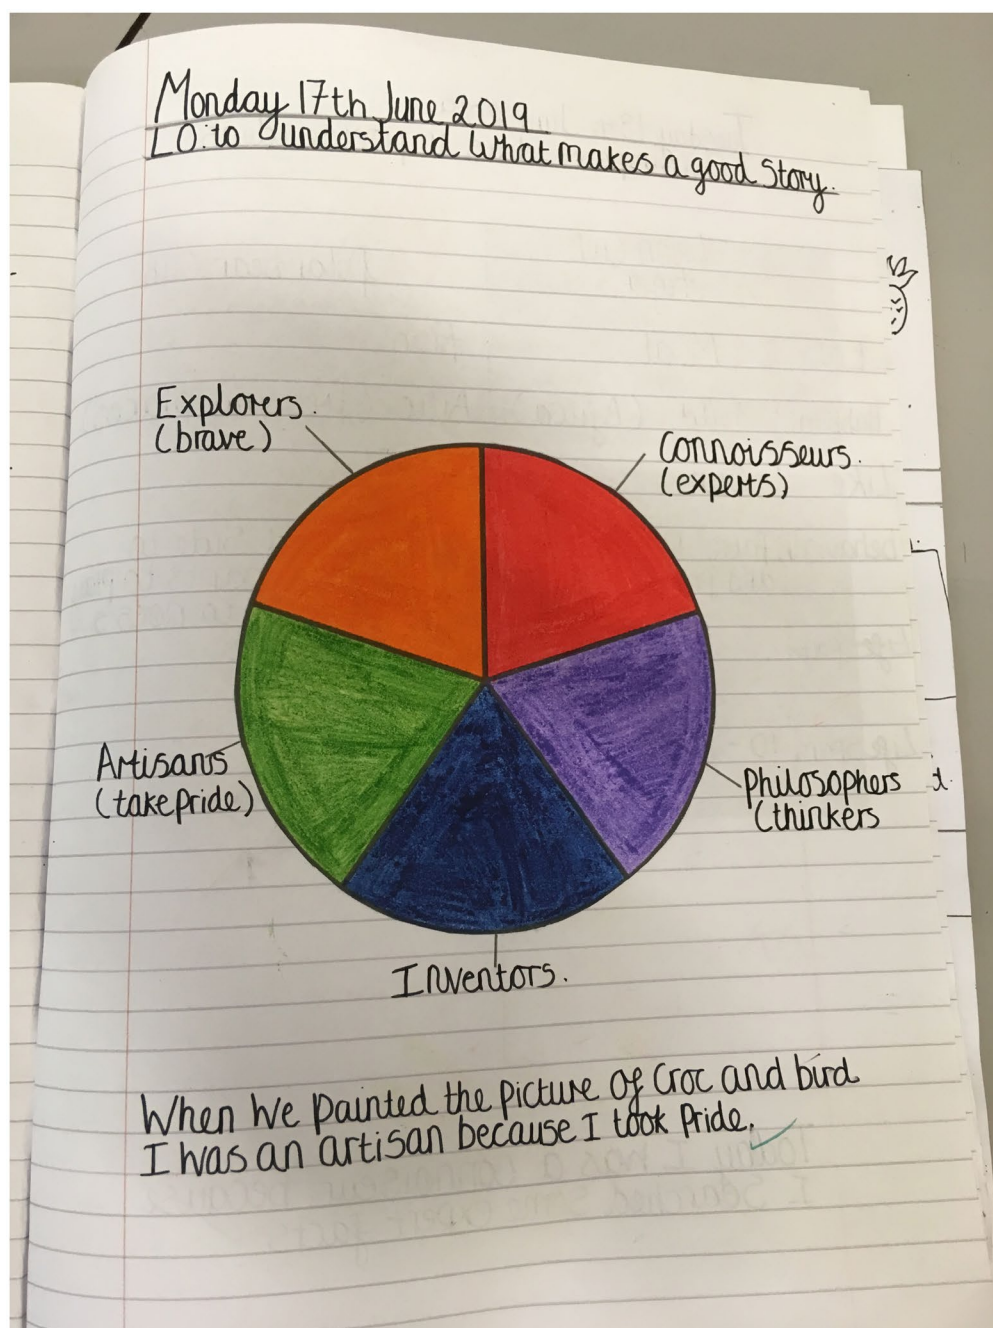 Monday 17th June 2019
LO: to understand What makes a good Story.
Explorers.
(brave)
Connoisseurs.
(experts)
Artisans
(take pride)
Philosophers
(thinkers
Inventors.
When We painted the picture of Croc and bird
I was an artisan because I took Pride.